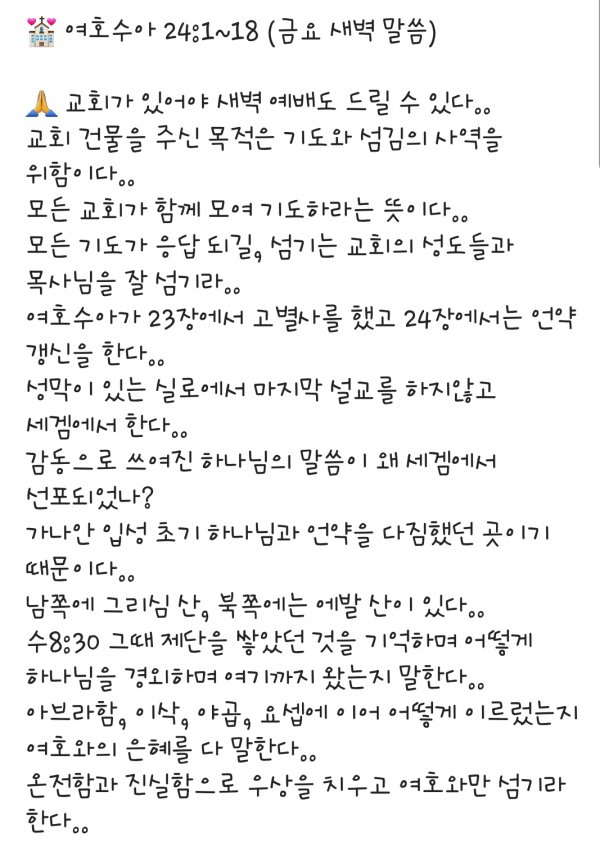 💒 여호수아 24:1~18 (금요 새벽 말씀)
🙏 교회가 있어야 새벽 예배도 드릴 수 있다..
교회 건물을 주신 목적은 기도와 섬김의 사역을
위함이다..
모든 교회가 함께 모여 기도하라는 뜻이다..
모든 기도가 응답 되길, 섬기는 교회의 성도들과
목사님을 잘 섬기라..
여호수아가 23장에서 고별사를 했고 24장에서는 언약
갱신을 한다..
성막이 있는 실로에서 마지막 설교를 하지않고
세겜에서 한다..
감동으로 쓰여진 하나님의 말씀이 왜 세겜에서
선포되었나?
가나안 입성 초기 하나님과 언약을 다짐했던 곳이기
때문이다..
남쪽에 그리심 산, 북쪽에는 에발 산이 있다..
수8:30 그때 제단을 쌓았던 것을 기억하며 어떻게
하나님을 경외하며 여기까지 왔는지 말한다..
아브라함, 이삭, 야곱, 요셉에 이어 어떻게 이르렀는지
여호와의 은혜를 다 말한다..
온전함과 진실함으로 우상을 치우고 여호와만 섬기라
한다..